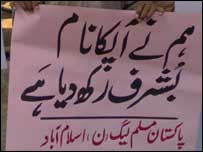 ہم نے آپکا نام
بُشرف رکھ دیا ہے
پاکستان مسلم لیگ (ن)، اسلام آباد